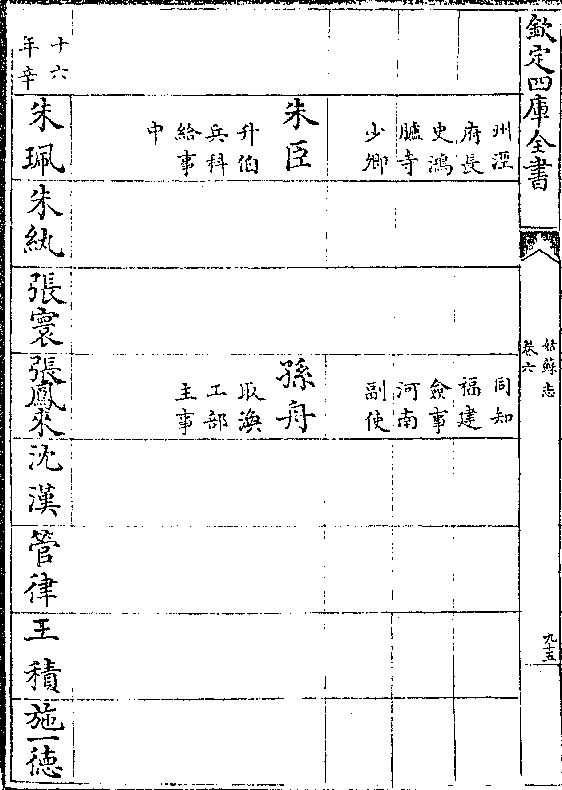 欽定四庫全書
姑蘇志
卷六
九十五
十六
年辛
州涇
府長
史鴻
臚寺
少卿
朱臣
升伯
兵科
給事
中
朱珮
朱紈
張寰
同知
福建
僉事
河南
副使
孫舟
取渙
工部
主事
張鳳來
沈漢
管律
王積
施一德